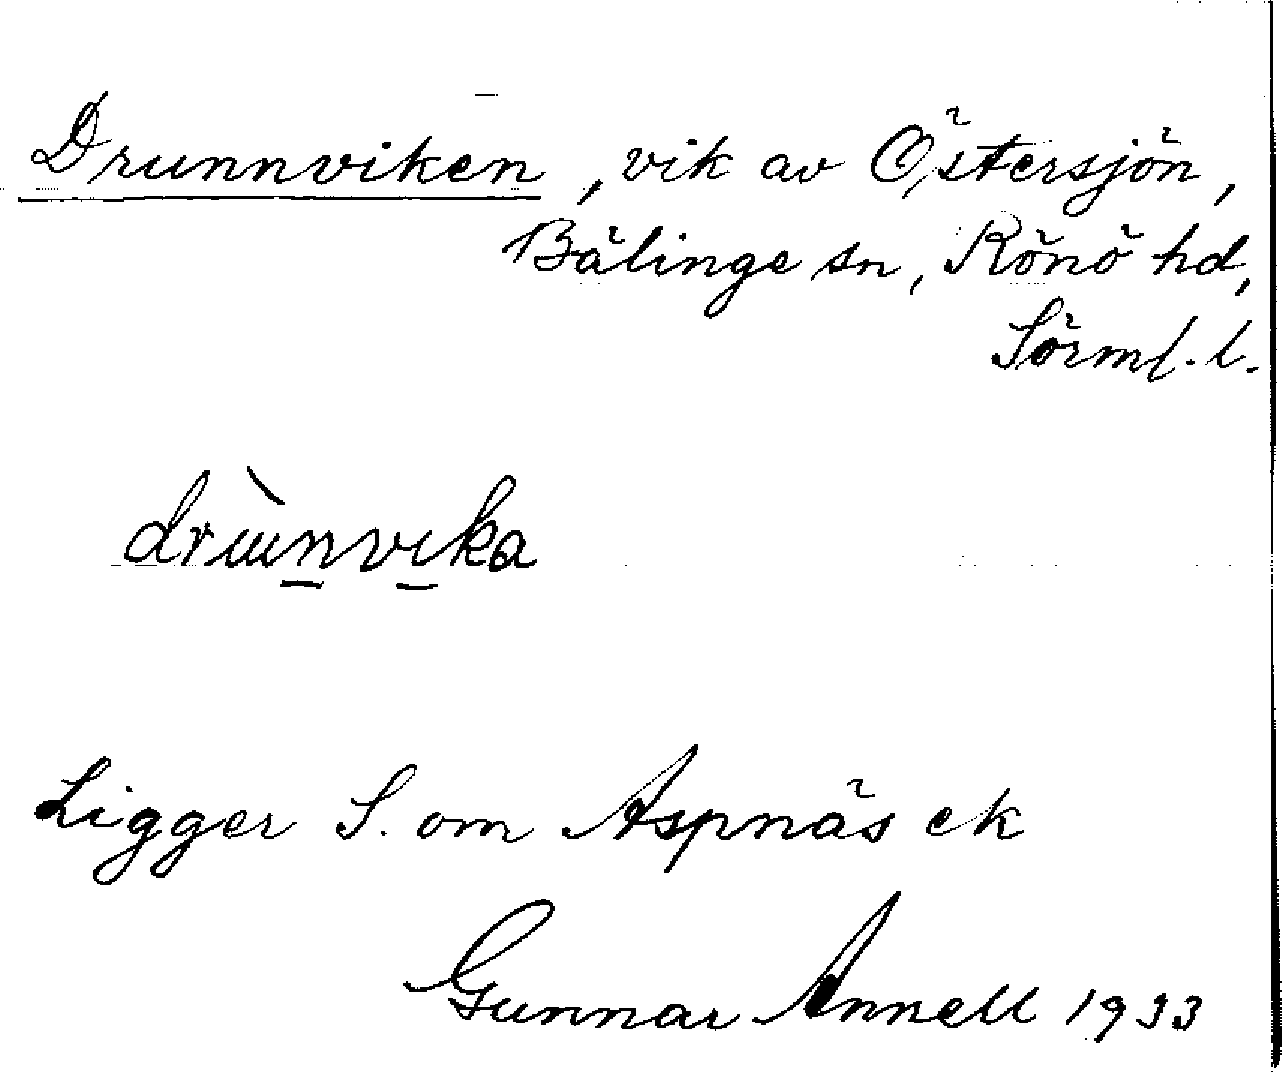 Drunnviken, vik av Östersjön,
Bälinge sn, Rönö hd,
Sörml. l.
Ligger S. om Aspnäs ek
Gunnar Annell 1933